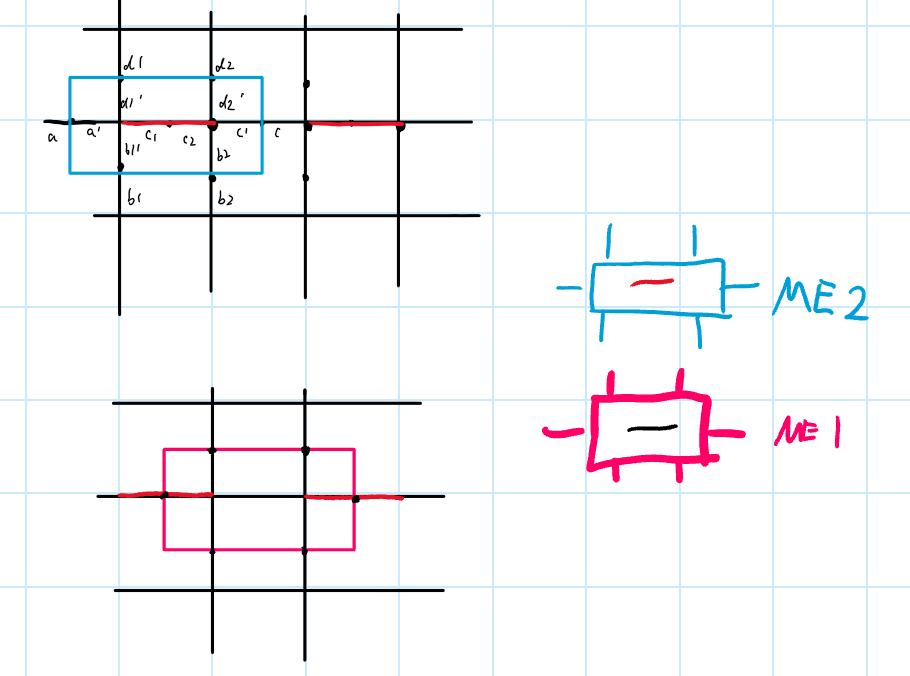 d1 d2
d1' d2'
a a' c1 c2 c' c
b1' b2
b1 b2
ME2
ME1